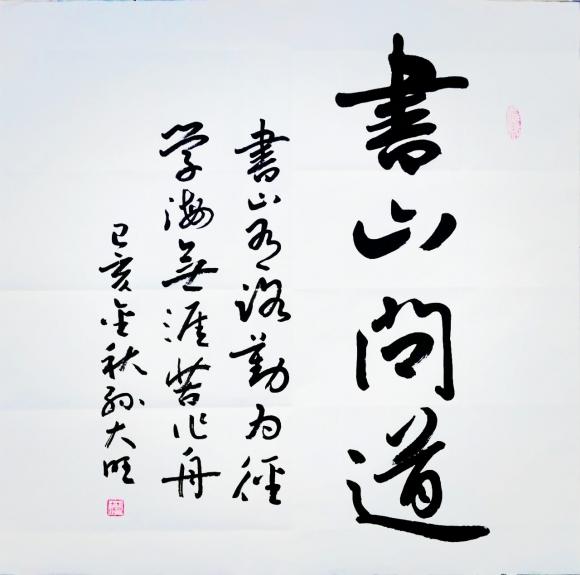 書山問道
書山有路勤为徑
学海無涯苦作舟
己亥金秋孙大旺